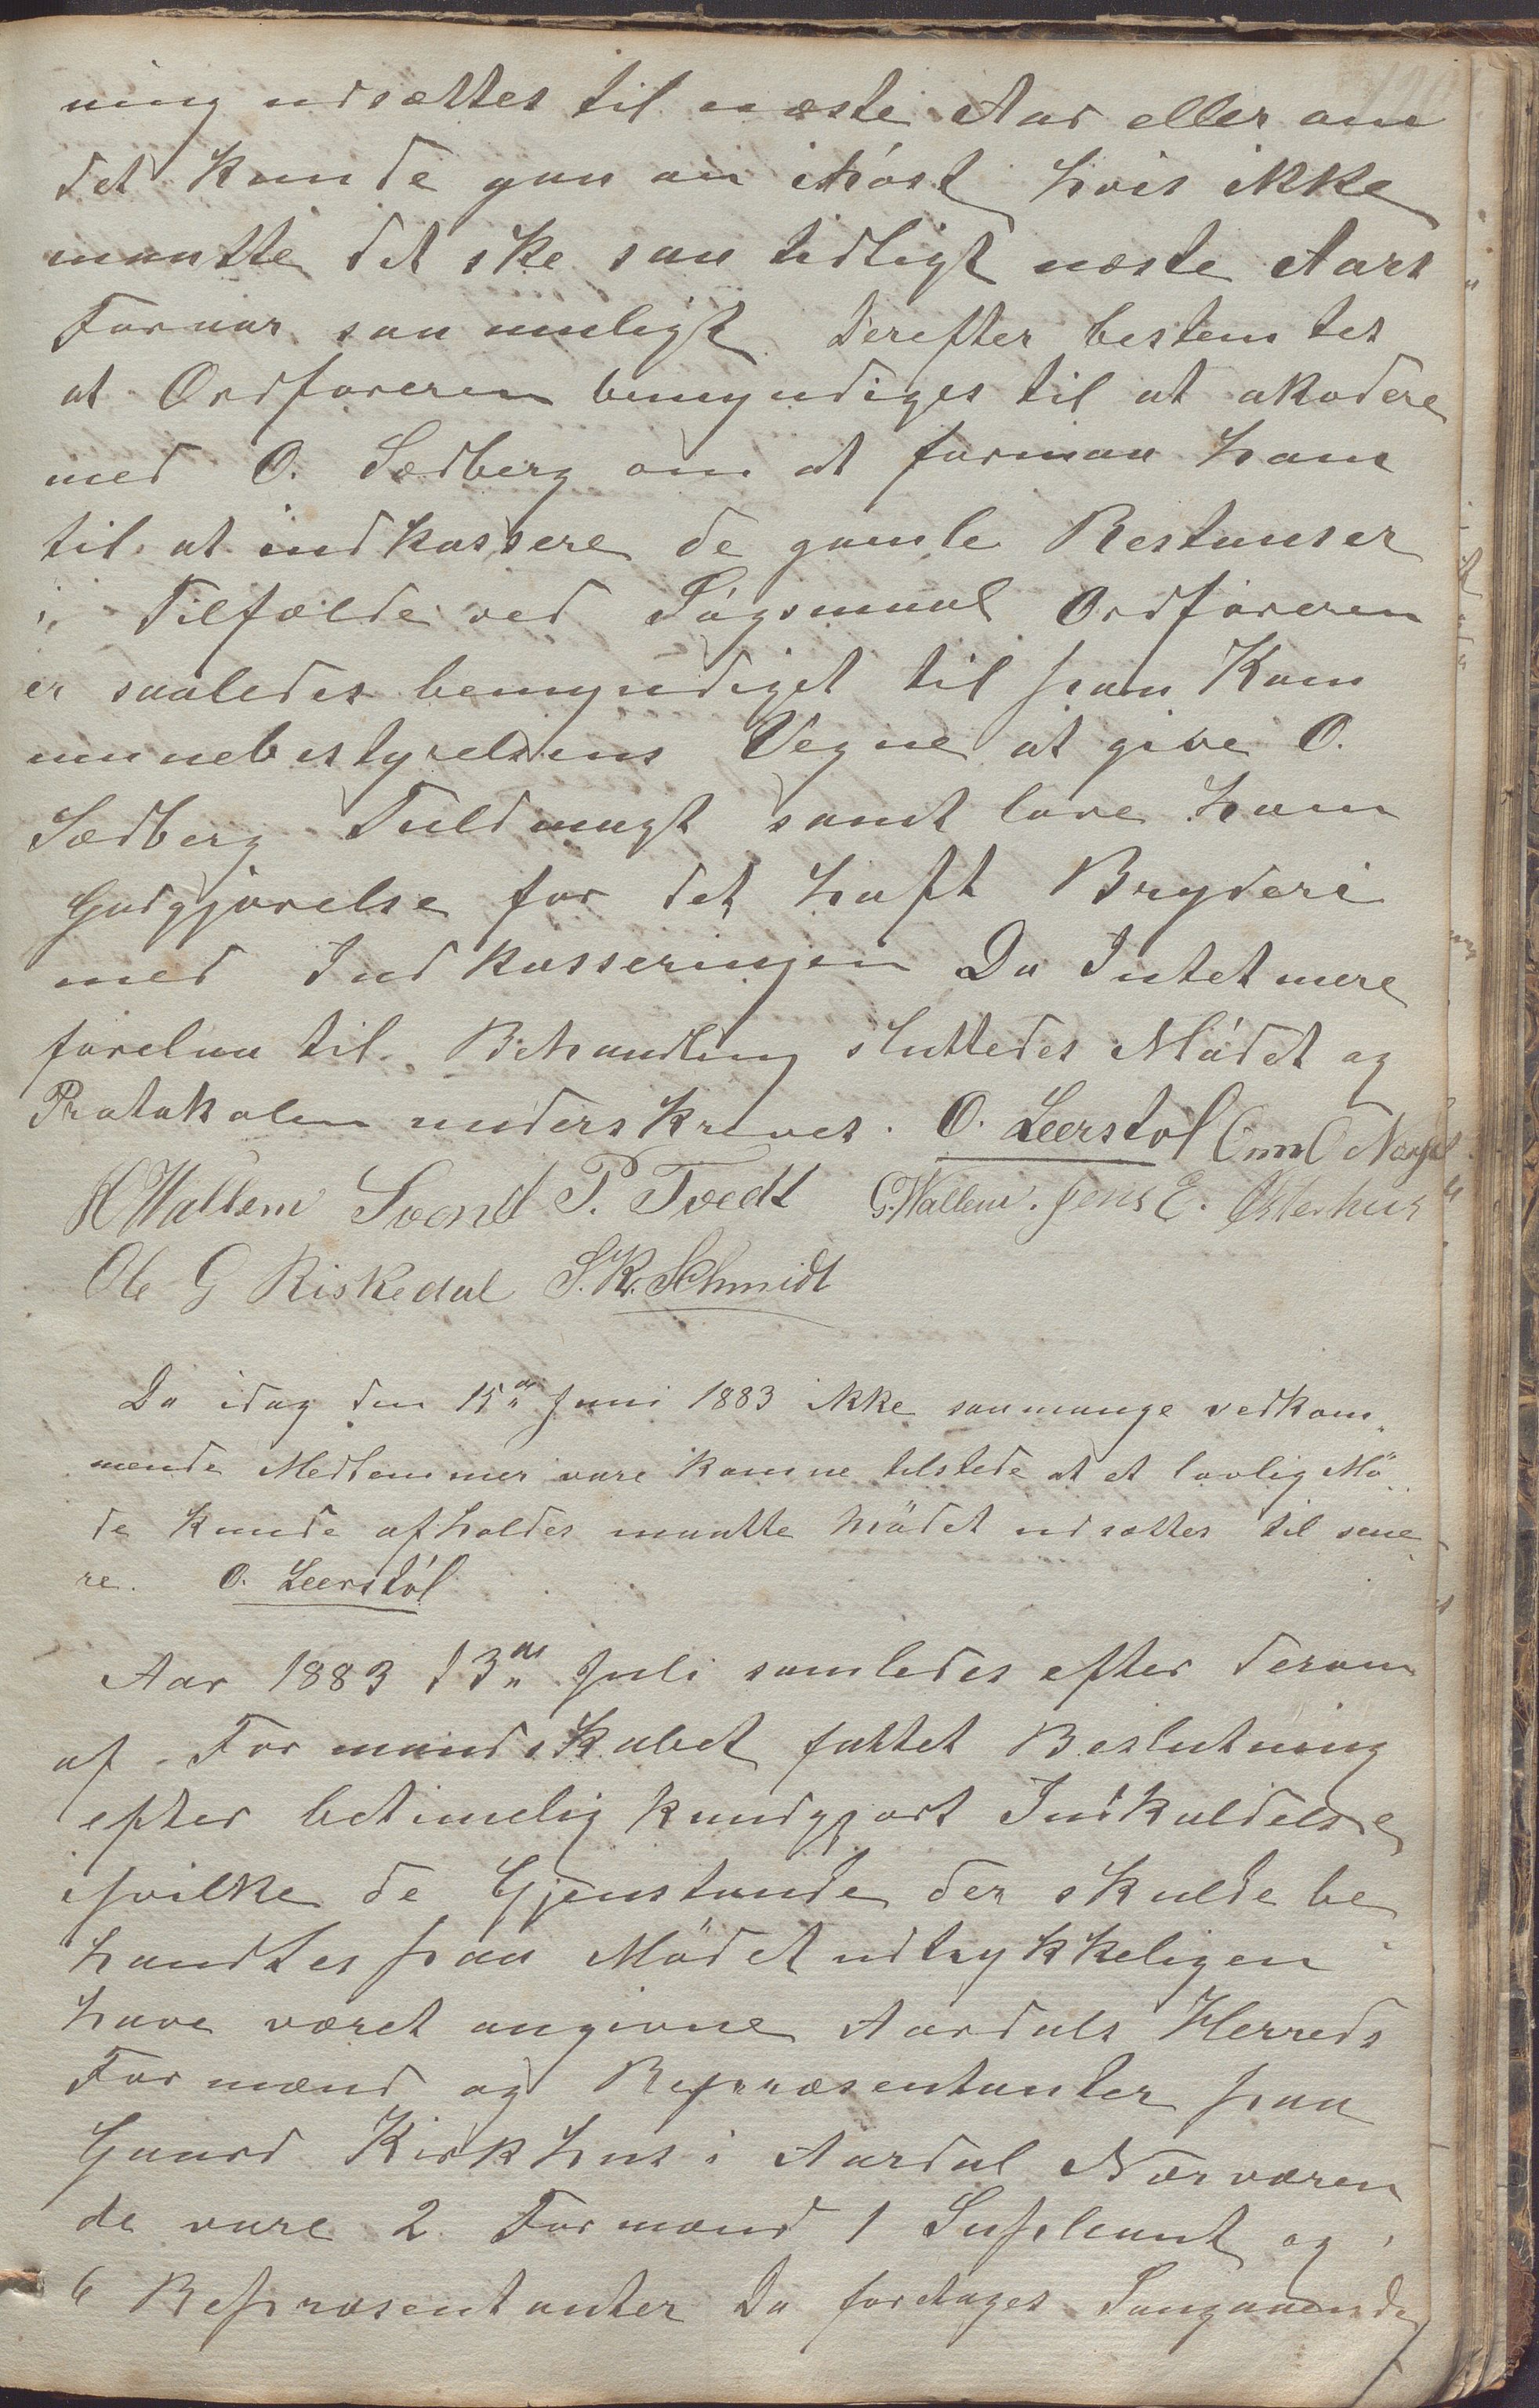 ning udsættes til næste Aar eller om
det kunde gaa an ihøst hvis ikke
maatte det ske saa tidligt næste Aars
Foraar saa muligt Derefter bestemtes
at Ordføreren bemyndiges til at akodere
med O. Sædberg om at formaa ham
til at indkassere de gamle Restanser
i Tilfælde ved Søgsmaal Ordføreren
er saaledes bemyndiget til paa Kom
munebestyrelsens Vegne at give O.
Sædberg Fuldmagt samt love ham
Godgjørelse for det haft Bryderi
med Indkasseringen Da Intet mere
forelaa til Behandling sluttedes Mødet og
Protokolen underskreves. O. Leerstøl
H Wallem Svend P. Tvedt G. Wallem. Jens E. Østerhus
Ole G Riskedal S. K. Schmidt
Da idag den 15de Juni 1883 ikke saamange vedkom
mende Medlemmer vare komne tilstede at et lovlig Mö
de kunde afholdes maatte Mödet udsættes til sene
re. O. Leerstøl
Aar 1883 d 3de Juli samledes efter derom
af Formandskabet fattet Beslutning
efter betimelig kundgjort Indkaldelse
i hvilke de Gjenstande der skulde be
handles paa Mödet udtrykkeligen
have været angivne Aardals Herreds
Formænd og Repræsentanter paa
Gaard Kirkhus i Aardal Nærværen
de vare 2 Formænd 1 Supleant og
6 Repræsentanter Da foretages Saagaaende